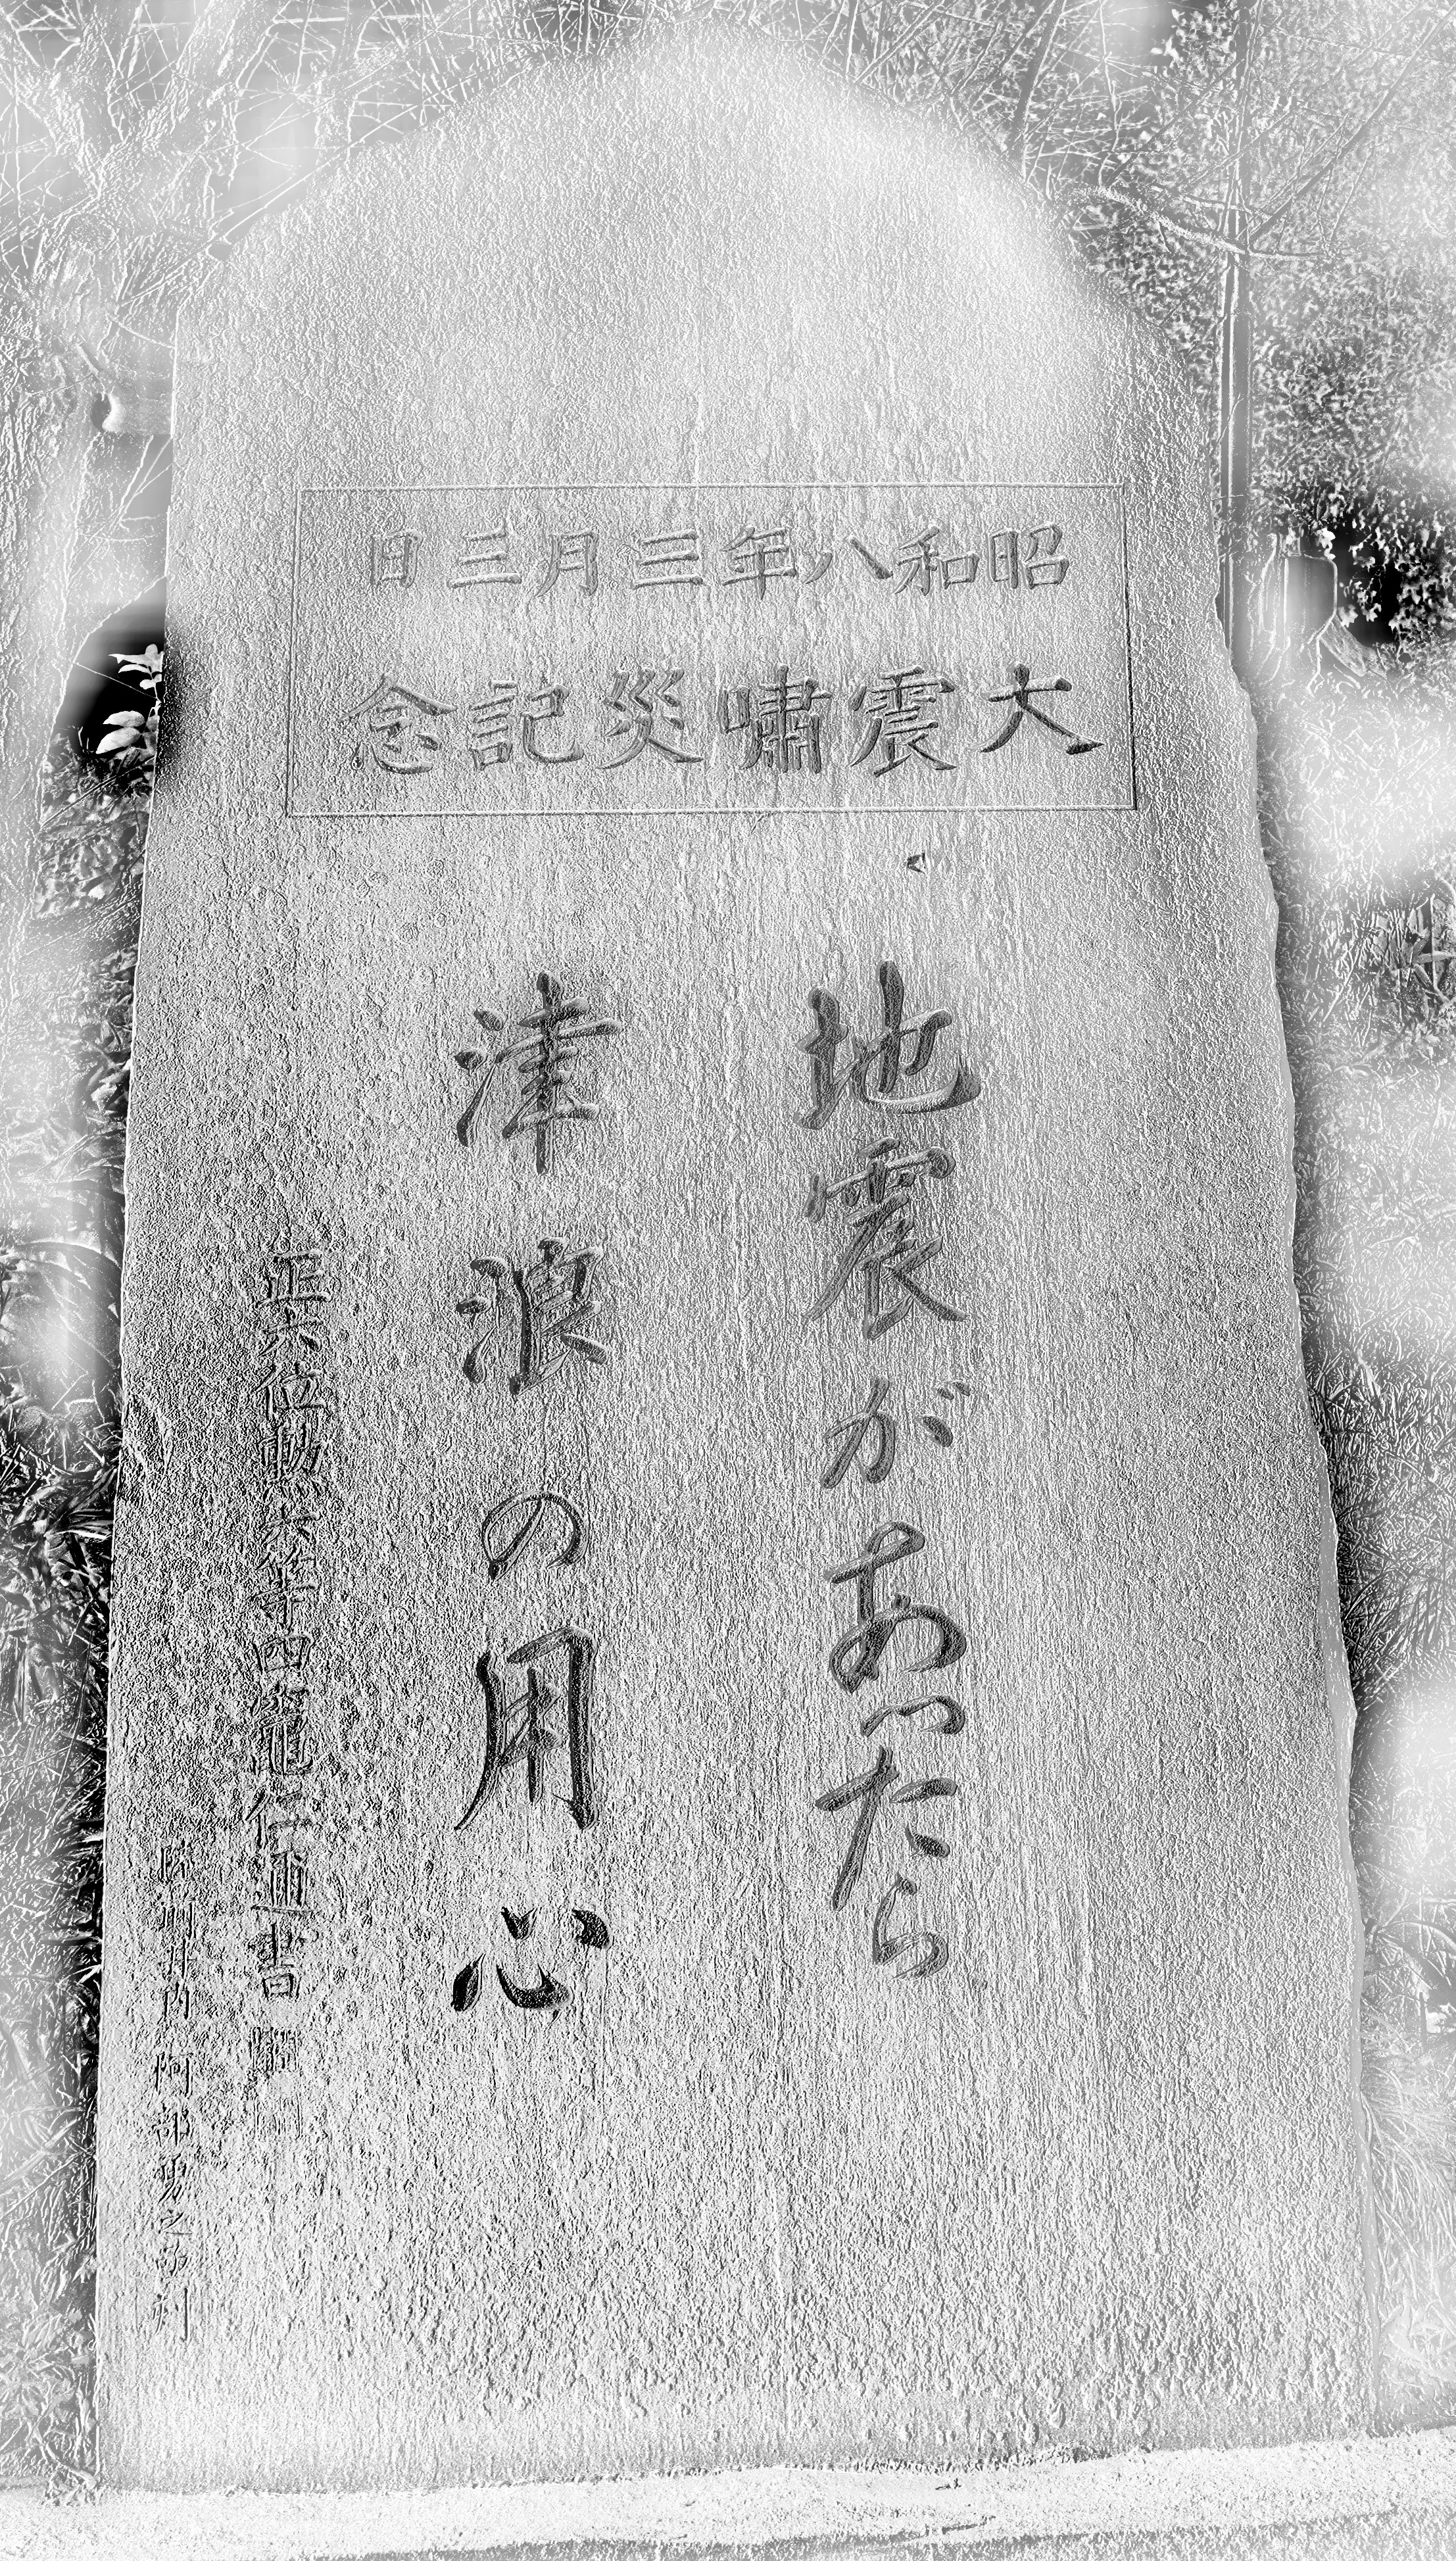 昭和八年三月三日
大震嘯災記念
地震があったら
津浪の用心
正六位勲六等四竈仁邇書
阿部勇之